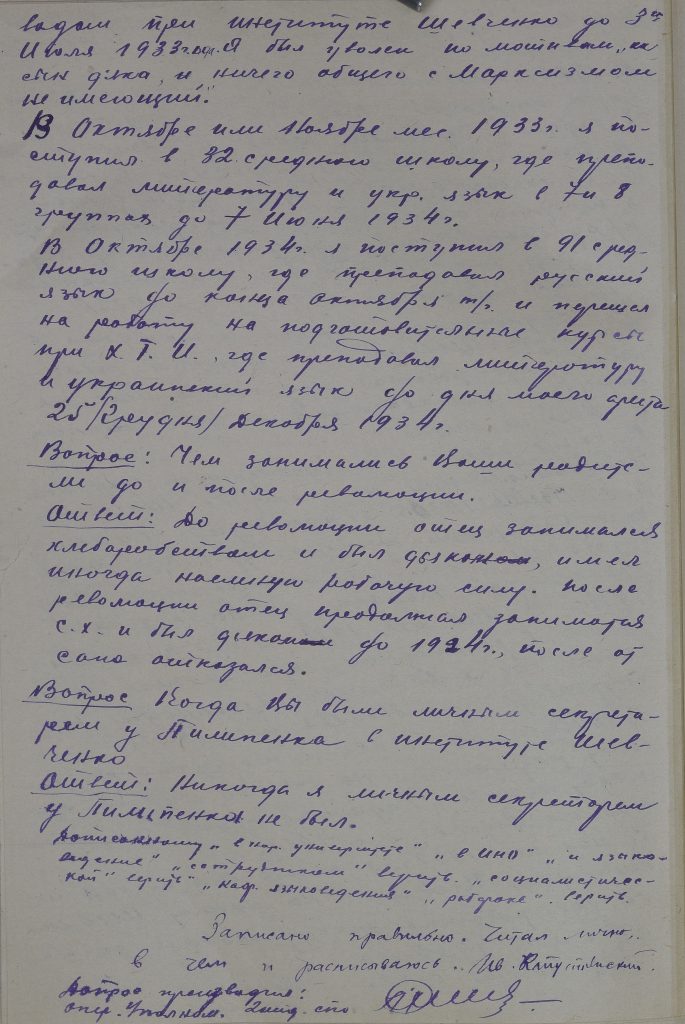 водам при институте Шевченко до 3го
Июля 1933 года. Я был уволен по мотивам „как
сын дяка, и ничего общего с Марксизмом
не имеющий."
В Октябре или Ноябре мес. 1933г. я по-
ступил в 82 среднюю школу, где препо-
давал литературу и укр. язык в 7 и 8
группах до 7 Июня 1934г.
В Октябре 1934г. я поступил в 91 сред-
нюю школу, где преподавал русский
язык до конца октября т/г. и перешел
на работу на подготовительные курсы
при Х.Г.И., где преподавал литературу
и украинский язык до дня моего ареста
25/Грудня/ Декабря 1934г.
Вопрос: Чем занимались Ваши родите-
ли до и после революции.
Ответ: До революции отец занимался
хлебаробством и был дьяком, имел
иногда наемную рабочую силу. После
революции отец продолжал заниматся
с.х. и был дьяком до 1924г., после от
сана отказался.
Вопрос Когда Вы были личным секрета-
рем у Пилипенка в институте Шев-
ченко
Ответ: Никогда я личным секретарем
у Пилипенка не был.
„в нар. университете" „в ИНО" „и языко-
ведение" „сотрудником" верить. „социалистичес-
кой" верить „каф. языковедения" „рабфаке". верить.
Записано правильно. Читал лично,
в чем и расписываюсь. Ив. Капустянский.
Допрос производил:
опер. Уполном. 2 отд. спо